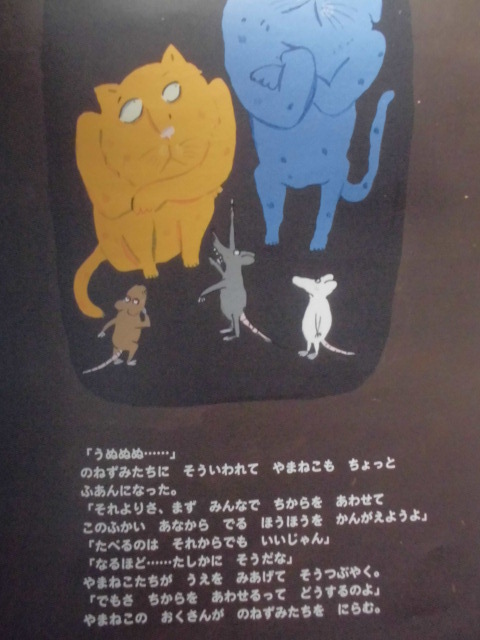 「うぬぬぬ……」
のねずみたちに　そういわれて　やまねこも　ちょっと
ふあんになった。
「それよりさ、まず　みんなで　ちからを　あわせて
このふかい　あなから　でる　ほうほうを　かんがえようよ」
「たべるのは　それからでも　いいじゃん」
「なるほど……たしかに　そうだな」
やまねこたちが　うえを　みあげて　そうつぶやく。
「でもさ　ちからを　あわせるって　どうするのよ」
やまねこの　おくさんが　のねずみたちを　にらむ。